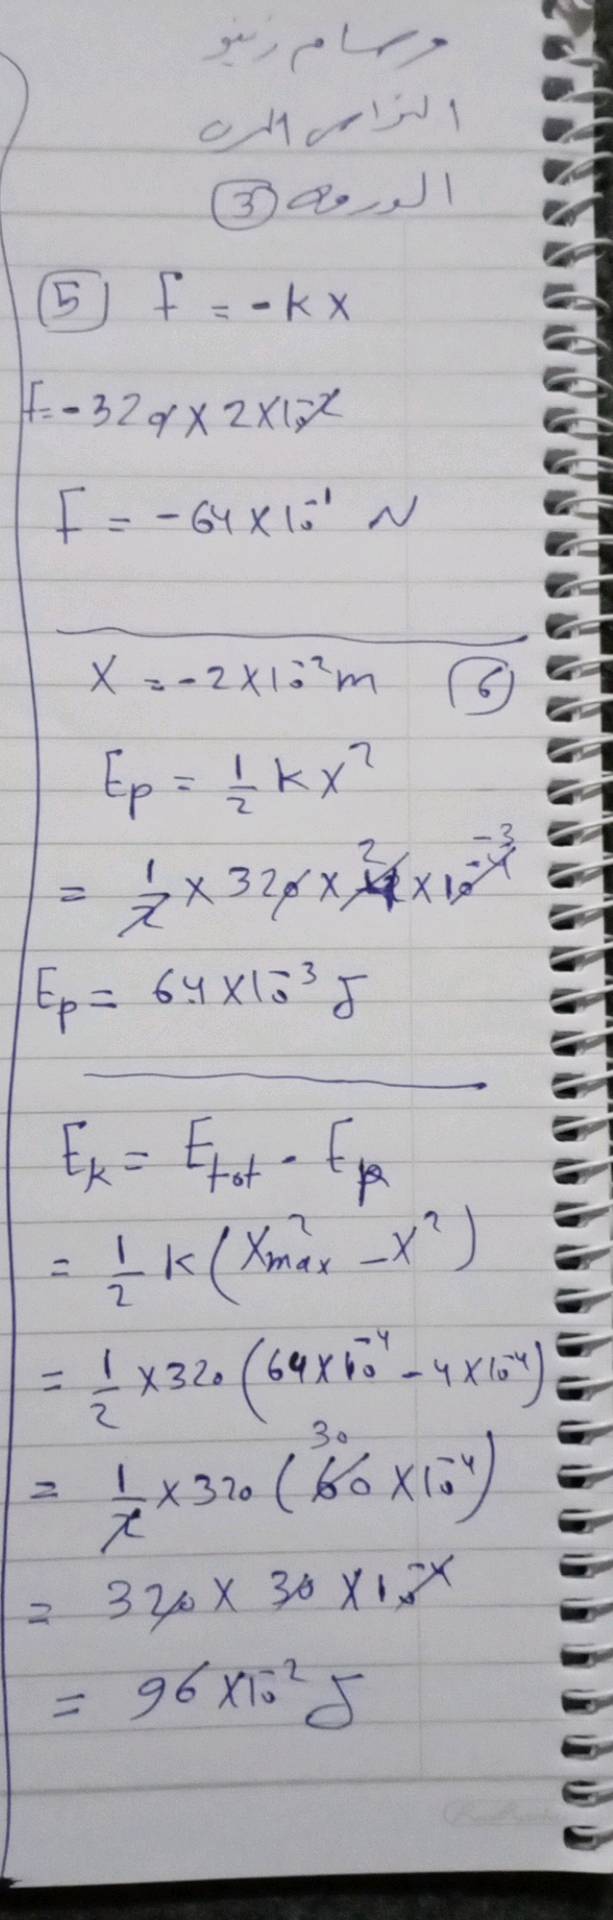 وسام زينو
النواس المرن
الورقة ③
5 F = -kx
F = -320 × 2 × 10⁻²
F = -64 × 10⁻¹ N
x = -2 × 10⁻² m 6
Ep = 1/2 k x²
= 1/2 × 320 × 4 2 × 10⁻⁴ ⁻³
Ep = 64 × 10⁻³ J
Ek = Etot - Ep
= 1/2 k (x²max - x²)
= 1/2 × 320 (64 × 10⁻⁴ - 4 × 10⁻⁴)
30
= 1/2 × 320 (60 × 10⁻⁴)
= 320 × 30 × 10⁻⁴
= 96 × 10⁻² J